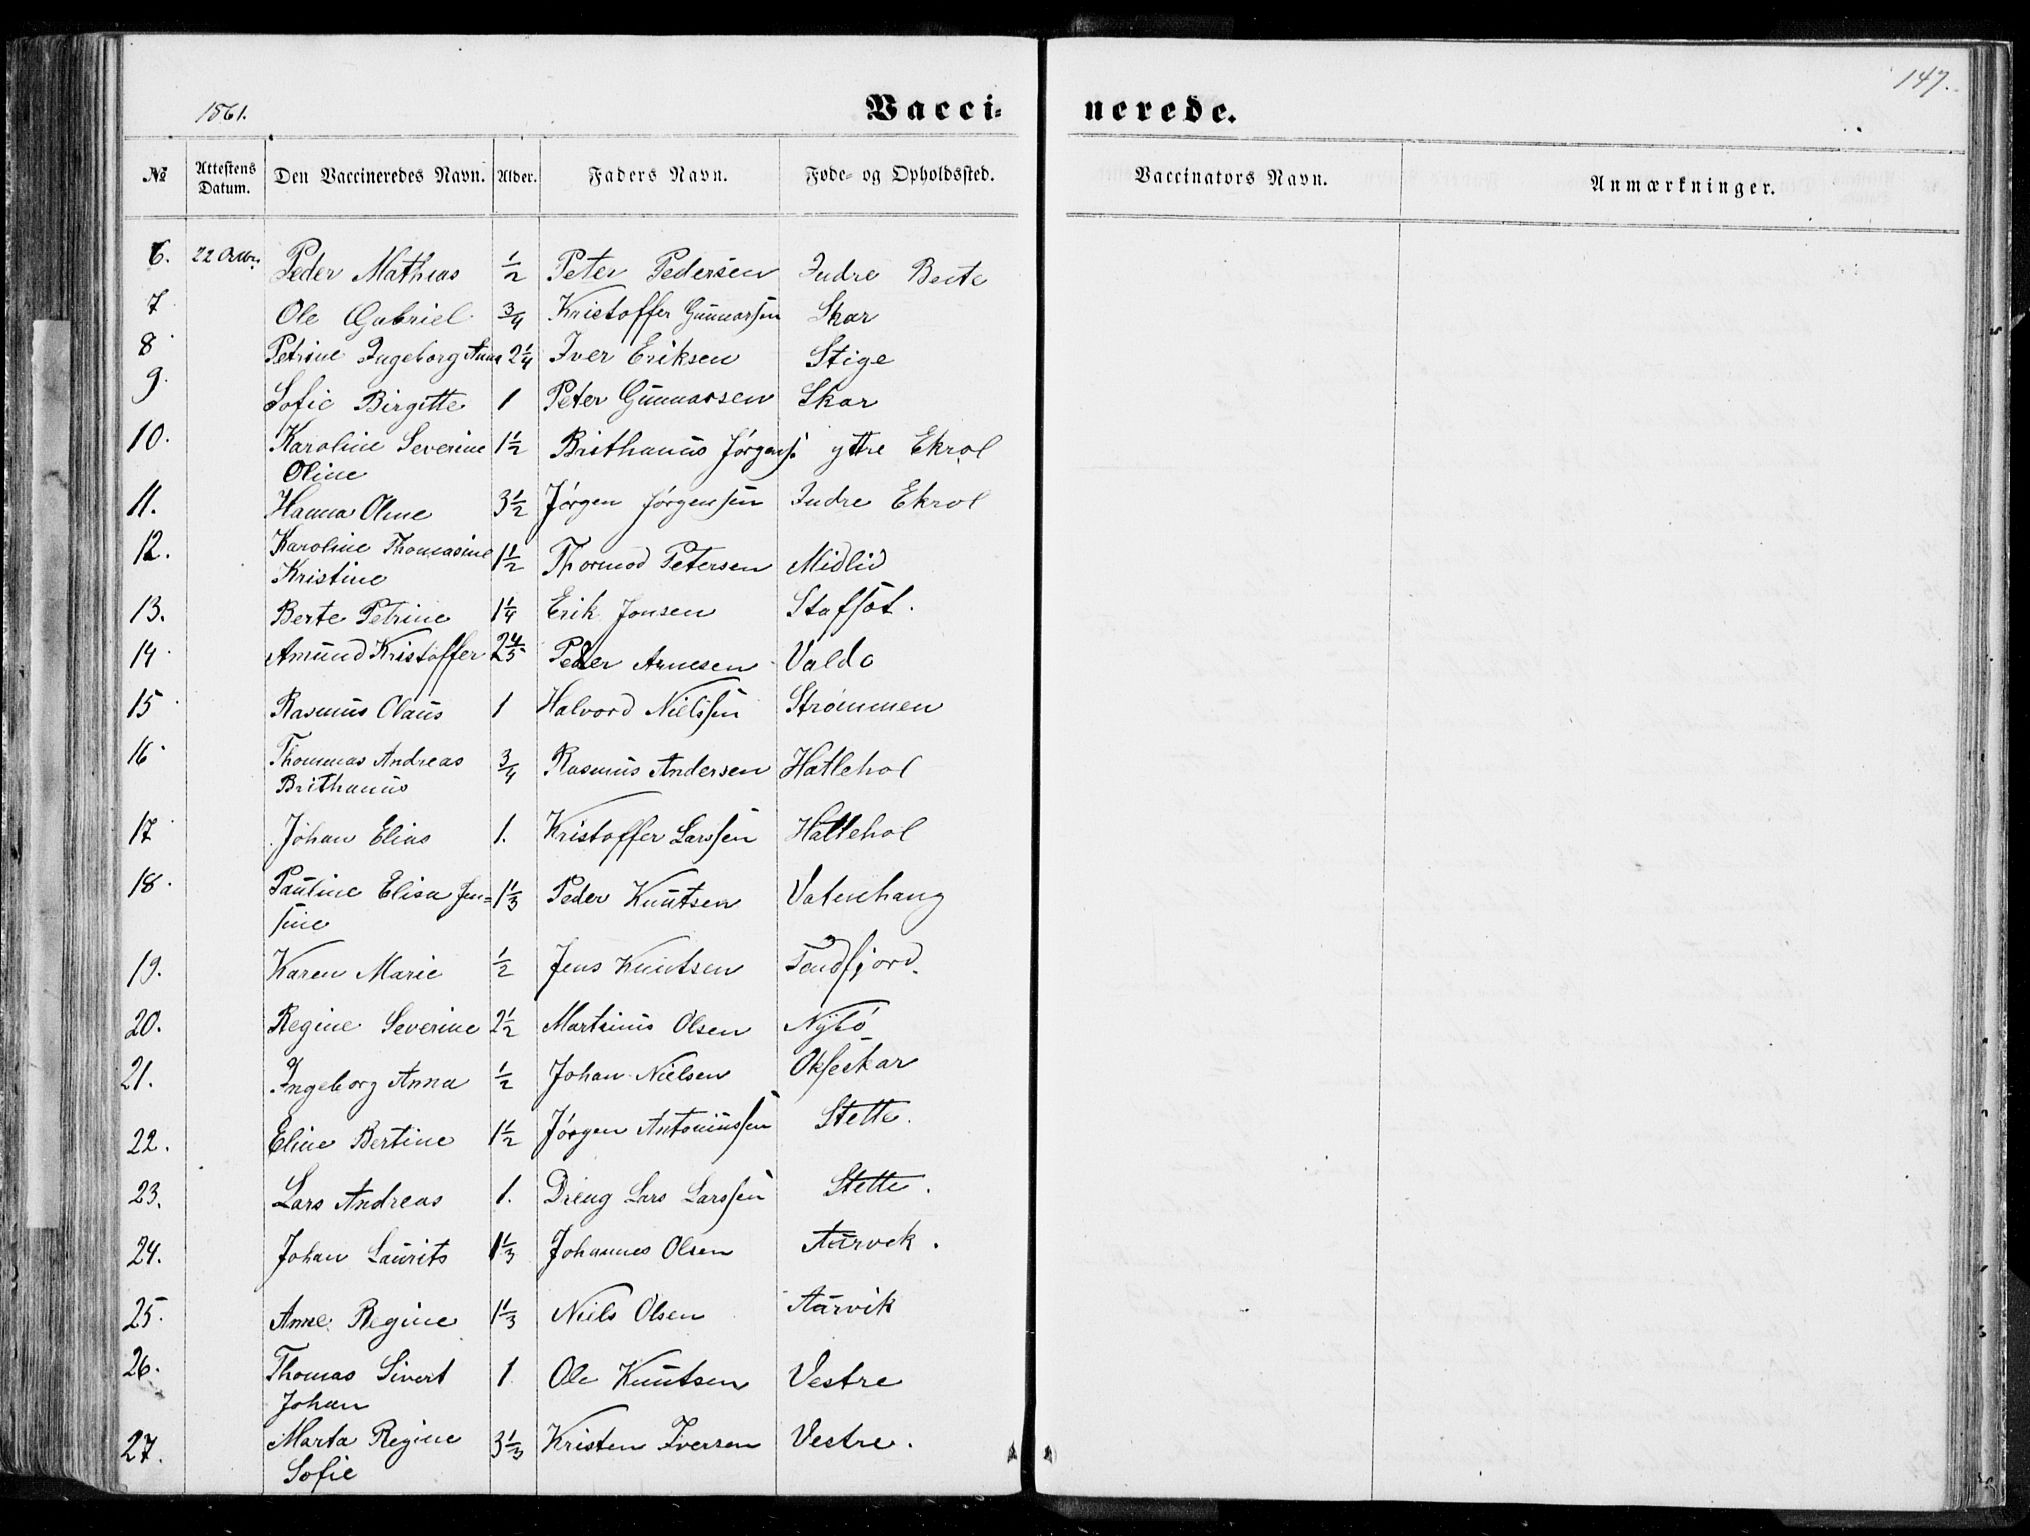 147.
1861.
Vacci- nerede.
№ Attestens Datum. Den Vaccineredes Navn. Alder. Faders Navn. Føde- og Opholdssted. Vaccinators Navn. Anmærkninger.
6. 22 Octbr. Peder Mathias 1/2 Peter Pedersen Indre Beite
7 Ole Gabriel 3/4 Kristoffer Gunnarsen Skar
8 Petrine Ingeborg Anna 2 1/4 Iver Eriksen Stige
9. Sofie Birgitte 1 Peter Gunnarsen Skar
10. Karoline Severine 1 1/2 Brithanus Jørgens. ytre Ekrol
Oline
11. Hanna Oline 3 1/2 Jørgen Jørgensen Indre Ekrol
12. Karoline Thomasine 1 1/2 Thormod Petersen Midlid
Kristine
13. Berte Petrine 1 1/4 Erik Jonsen Stafset.
14 Amund Kristoffer 2 4/5 Peder Arnesen Valde
15 Rasmus Olaus 1 Halvord Nielssen Strømmen
16 Thommas Andreas 3/4 Rasmus Andersen Hatlehol
Brithanus
17 Johan Elias 1. Kristoffer Larssen Hatlehol
18. Pauline Elisa Jen= 1 1/3 Peder Knutsen Vatnehaug
sine
19. Karen Marie 1/2 Jens Knutsen Tendfjord.
20. Regine Severine 2 1/2 Martinus Olsen Nybø
21. Ingeborg Anna 1/2 Johan Nielsen Okseskar
22. Eline Bertine 1 1/2 Jørgen Antoniussen Stette.
23. Lars Andreas 1. Dreng Lars Larssen Stette.
24. Johan Laurits 1 1/3 Johannes Olsen Aurvek.
25. Anne Regine 1 1/3 Niels Olsen Aurvik
26. Thomas Sivert 1 Ole Knutsen Vestre
Johan
27. Marta Regine 3 1/3 Kristen Iversen Vestre.
Sofie